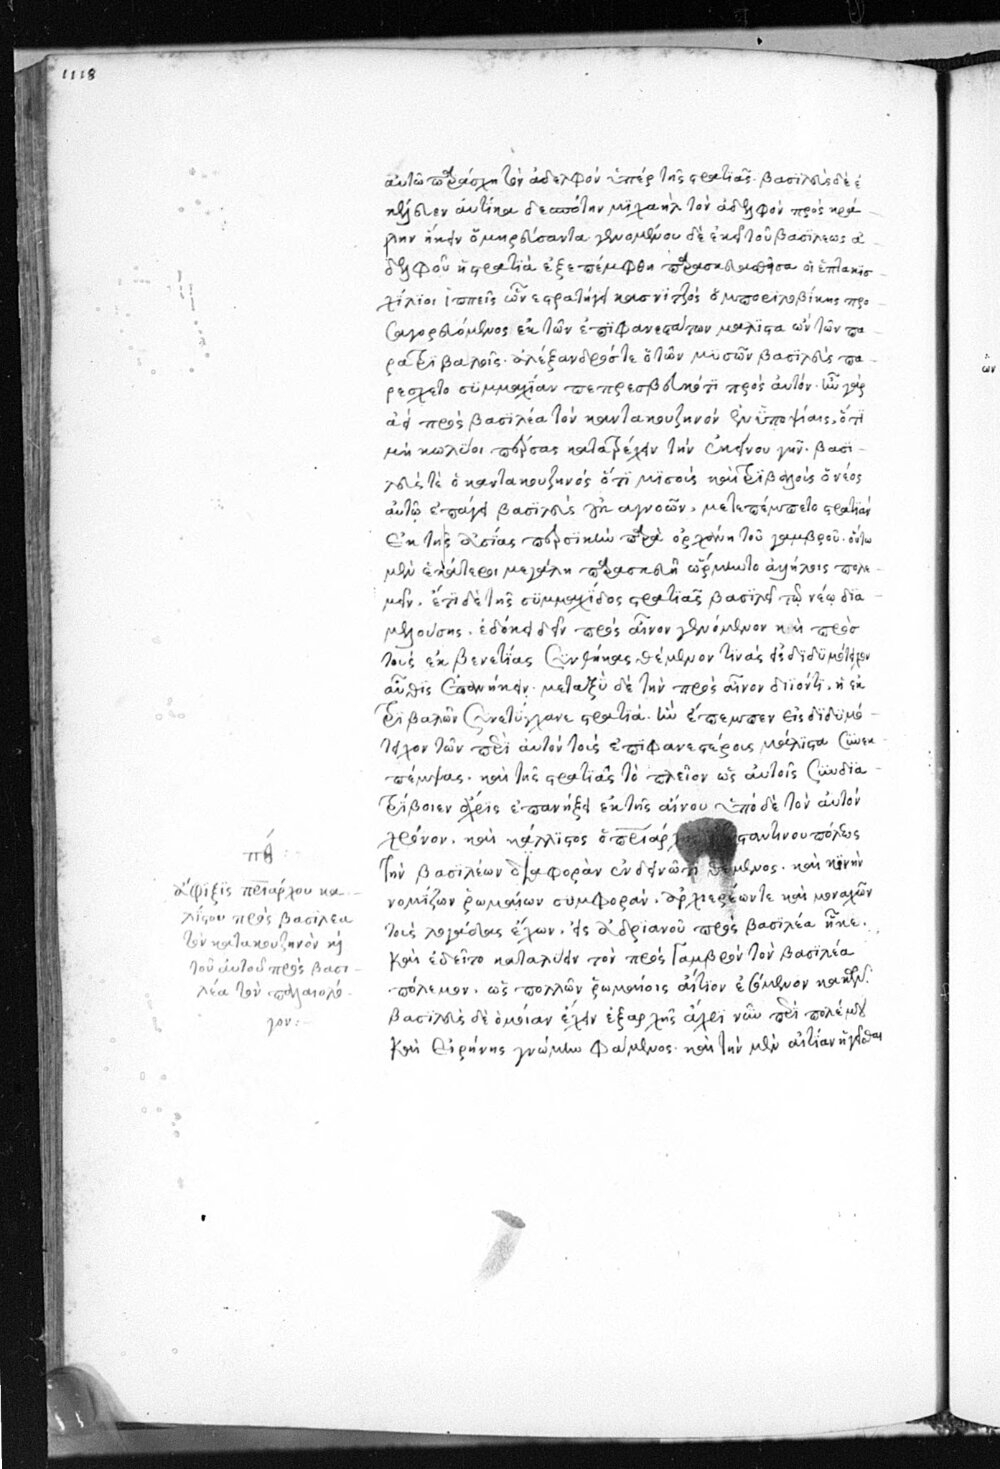 1118
αὐτῶ παράσχη τὸν ἀδελφὸν ὑπὲρ τῆς στρατιᾶς. βασιλεὺς δὲ ἐ
κέλευεν αὐτίκα δεσπότην μιχαὴλ τὸν ἀδελφὸν πρὸς κρά
λην ἥκειν ὁμηρεύσαντα. γενομένου δὲ ἐκεῖ τοῦ βασιλέως ἀ
δελφοῦ ἡ στρατιὰ ἐξεπέμφθη παρασκευασθεῖσα οἱ ἑπτακισ
χίλιοι ἱππεῖς ὧν ἐστρατήγει κασνιτζὸς ὁ μποριλοβίκης προ
σαγορευόμενος ἐκ τῶν ἐπιφανεστάτων μάλιστα ὢν τῶν πα
ρὰ τριβαλοῖς. ἀλέξανδρός τε ὁ τῶν μυσῶν βασιλεὺς πα
ρέσχετο συμμαχίαν πεπρεσβευκότι πρὸς αὐτόν. ἦν γὰρ
ἀεὶ πρὸς βασιλέα τὸν καντακουζηνὸν ἐν ὑποψίαις, ὅτι
μὴ κωλύοι πέρσας κατατρέχειν τὴν ἐκείνου γῆν. βασι
λεύς τε ὁ καντακουζηνὸς ὅτι μυσοὺς καὶ τριβαλοὺς ὁ νέος
αὐτῶ ἐπάγει βασιλεὺς οὐκ ἀγνοῶν, μετεπέμπετο στρατιὰν
ἐκ τῆς ἀσίας περσικὴν παρὰ ὀρχάνη τοῦ γαμβροῦ. οὕτω
μὲν ἑκάτεροι μεγάλη παρασκευῆ ὥρμηντο ἀλλήλοις πολε
μεῖν. ἔτι δὲ τῆς συμμαχίδος στρατιᾶς βασιλεῖ τῶ νέω δια
μελλούσης, ἐδόκει δεῖν πρὸς αἶνον γενόμενον καὶ πρὸς
τοὺς ἐκ βενετίας συνθήκας θέμενον τινὰς εἰς διδυμότειχον
αὖθις ἐπανήκειν. μεταξὺ δὲ τὴν πρὸς αἶνον διιόντι, ἡ ἐκ
τριβαλῶν συνετύγχανε στρατιά. ἣν ἔπεμπεν εἰς διδυμό
τειχον τῶν περὶ αὐτὸν τοὺς ἐπιφανεστέρους μάλιστα συνεκ
πέμψας. καὶ τῆς στρατιᾶς τὸ πλεῖον ὡς αὐτοῖς συνδια
τρίβοιεν ἄχρις ἐπανήξει ἐκ τῆς αἴνου. ὑπὸ δὲ τὸν αὐτὸν
χρόνον, καὶ κάλλιστος ὁ πατριάρχης κωνσταντινουπόλεως
τὴν βασιλέων διαφορὰν ἐν δεινῶ τιθέμενος. καὶ κοινὴν
νομίζων ῥωμαίων συμφορὰν, ἀρχιερέων τε καὶ μοναχῶν
τοὺς λογάδας ἔχων, εἰς ἀδριανοῦ πρὸς βασιλέα ἧκε.
καὶ ἐδεῖτο καταλύειν τὸν πρὸς γαμβρὸν τὸν βασιλέα
πόλεμον, ὡς πολλῶν ῥωμαίοις αἴτιον ἐσόμενον κακῶν.
βασιλεὺς δὲ ὁμοίαν ἔχειν ἐξαρχῆς ἄχρι νῦν περὶ πολέμου
καὶ εἰρήνης γνώμην φάμενος. καὶ τὴν μὲν αἰτίαν ἡγεῖσθαι
ἄφιξις πατριάρχου κα
λίστου πρὸς βασιλέα
τὸν κατακουζηνὸν καὶ
τοῦ αὐτοῦ πρὸς βασι
λέα τὸν παλαιολό
γον: